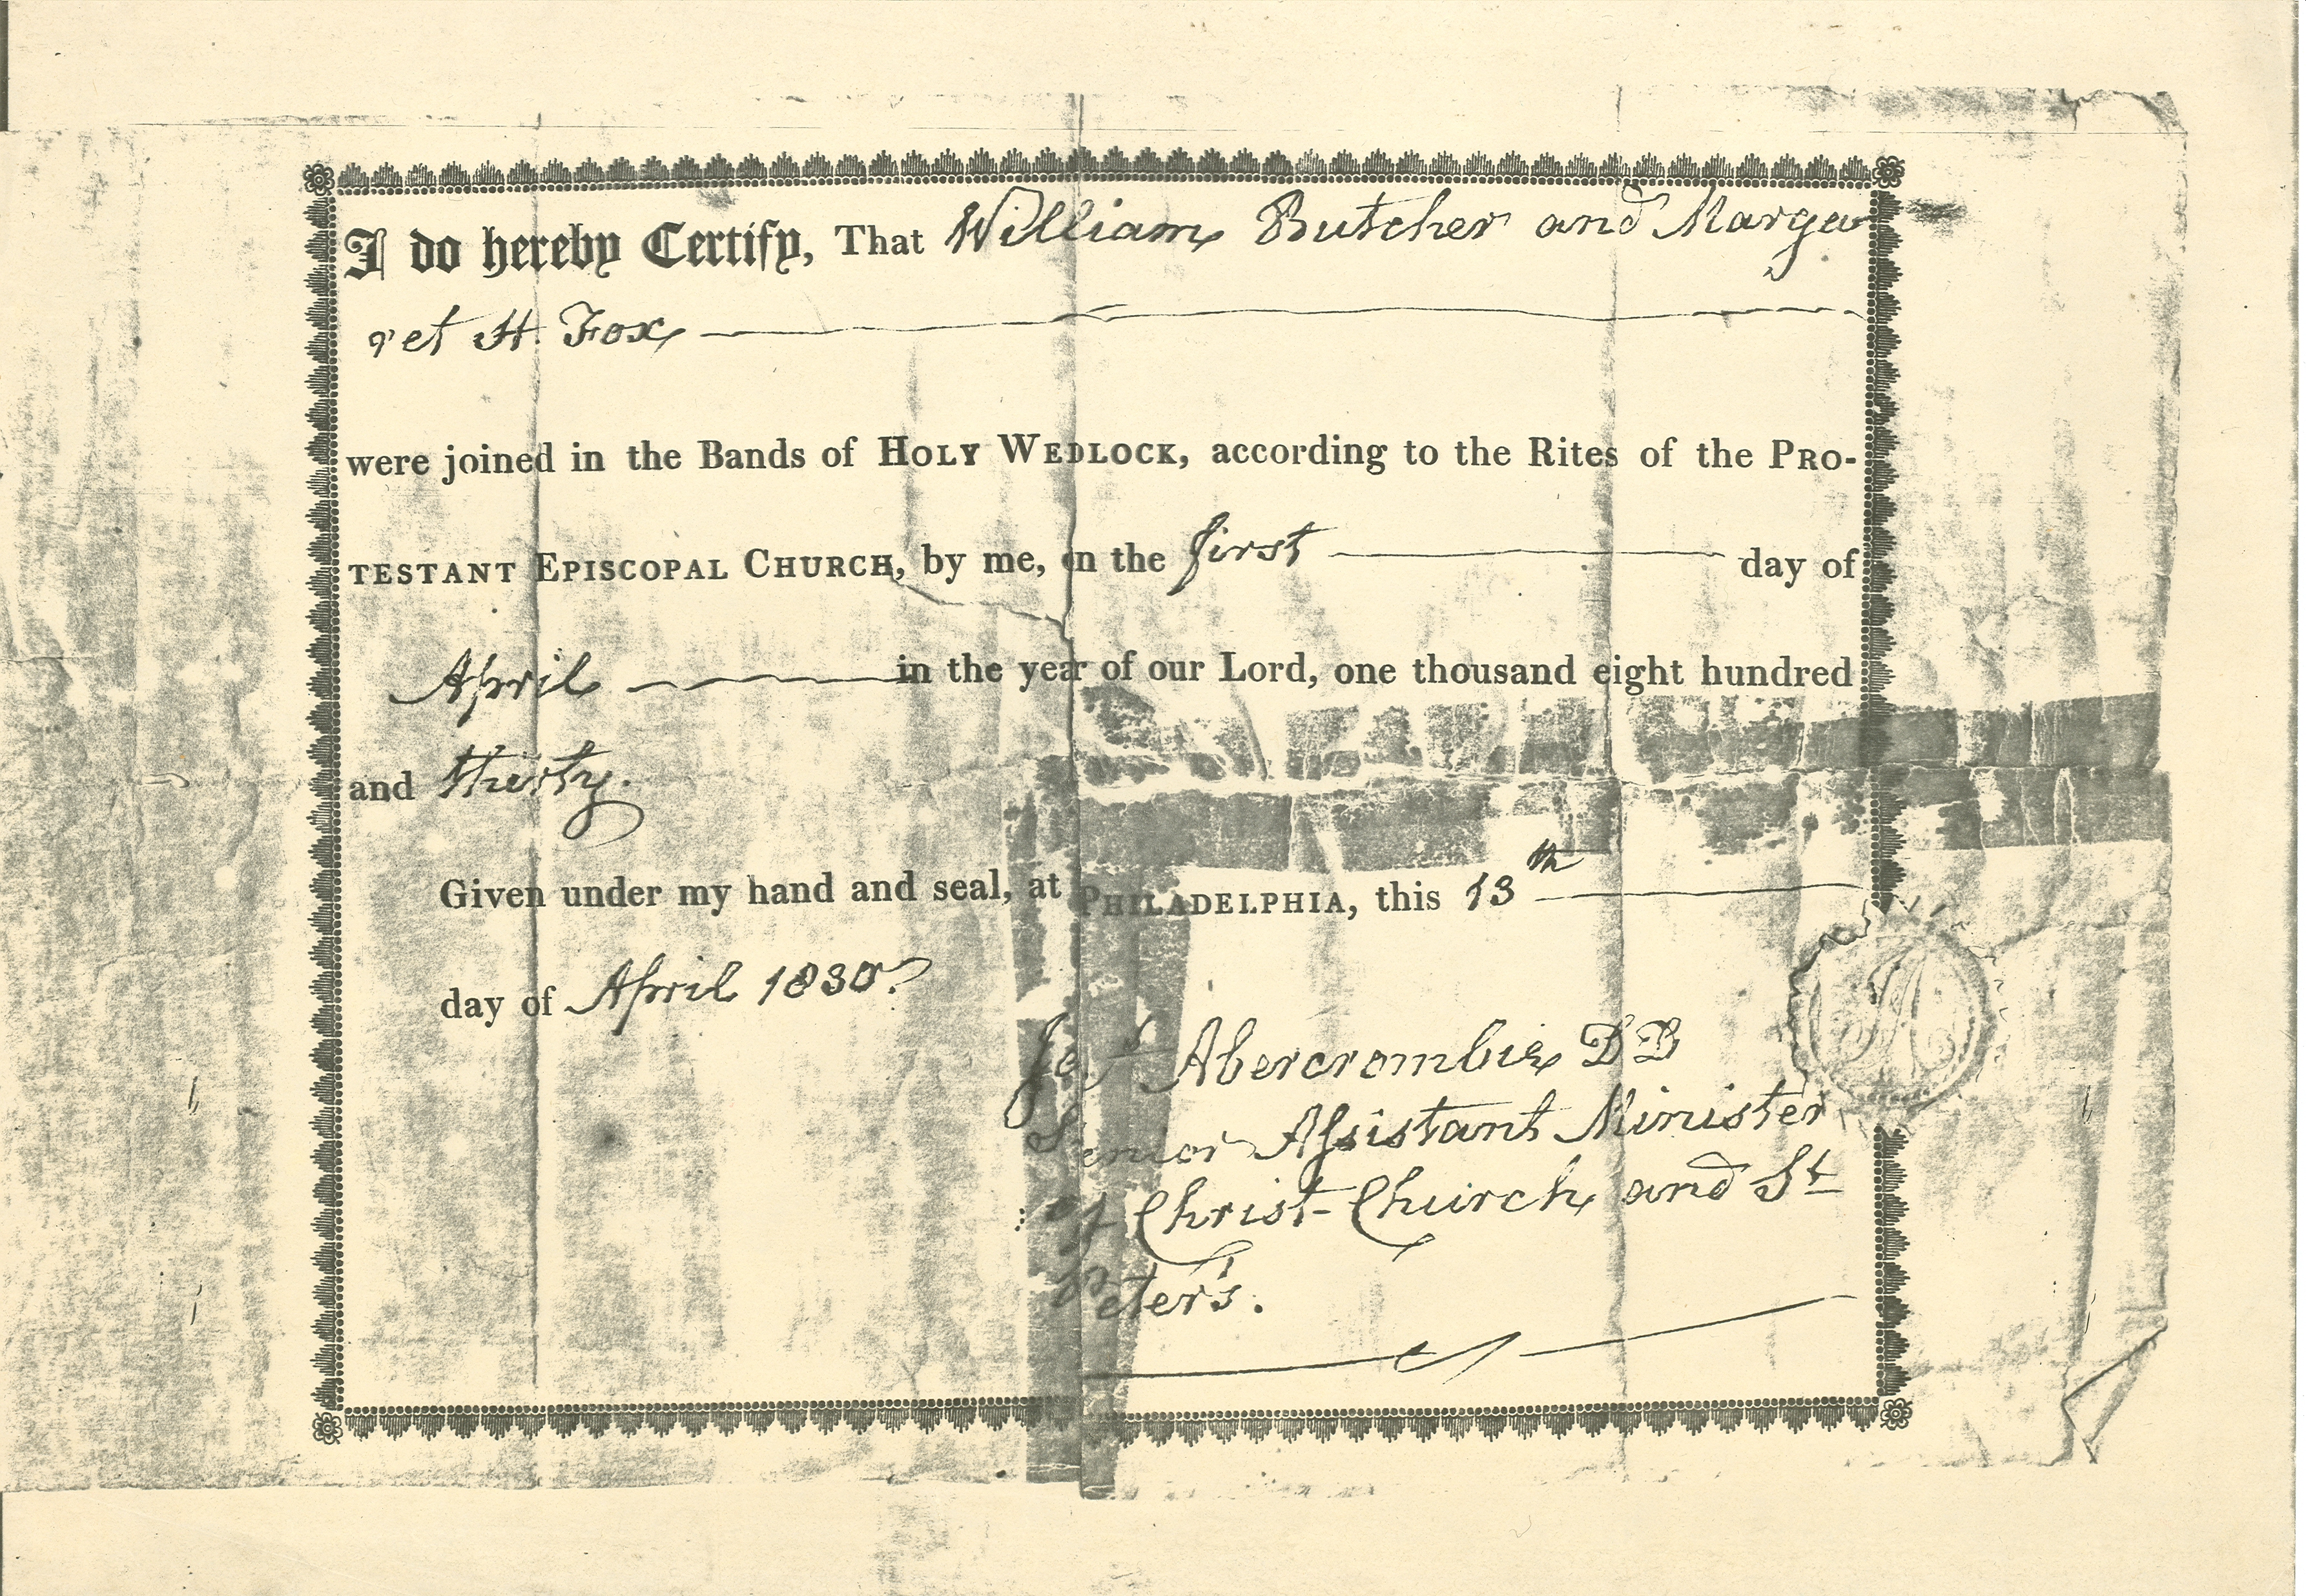 I do hereby Certify, That William Butcher and Marga
ret H. Fox
were joined in the Bands of HOLY WEDLOCK, according to the Rites of the PRO-
TESTANT EPISCOPAL CHURCH, by me, on the first day of
April in the year of our Lord, one thousand eight hundred
and thirty.
Given under my hand and seal, at PHILADELPHIA, this 13th
day of April 1830.
Abercrombie DD
Senior Assistant Minister
of Christ-Church and St
Peter's.